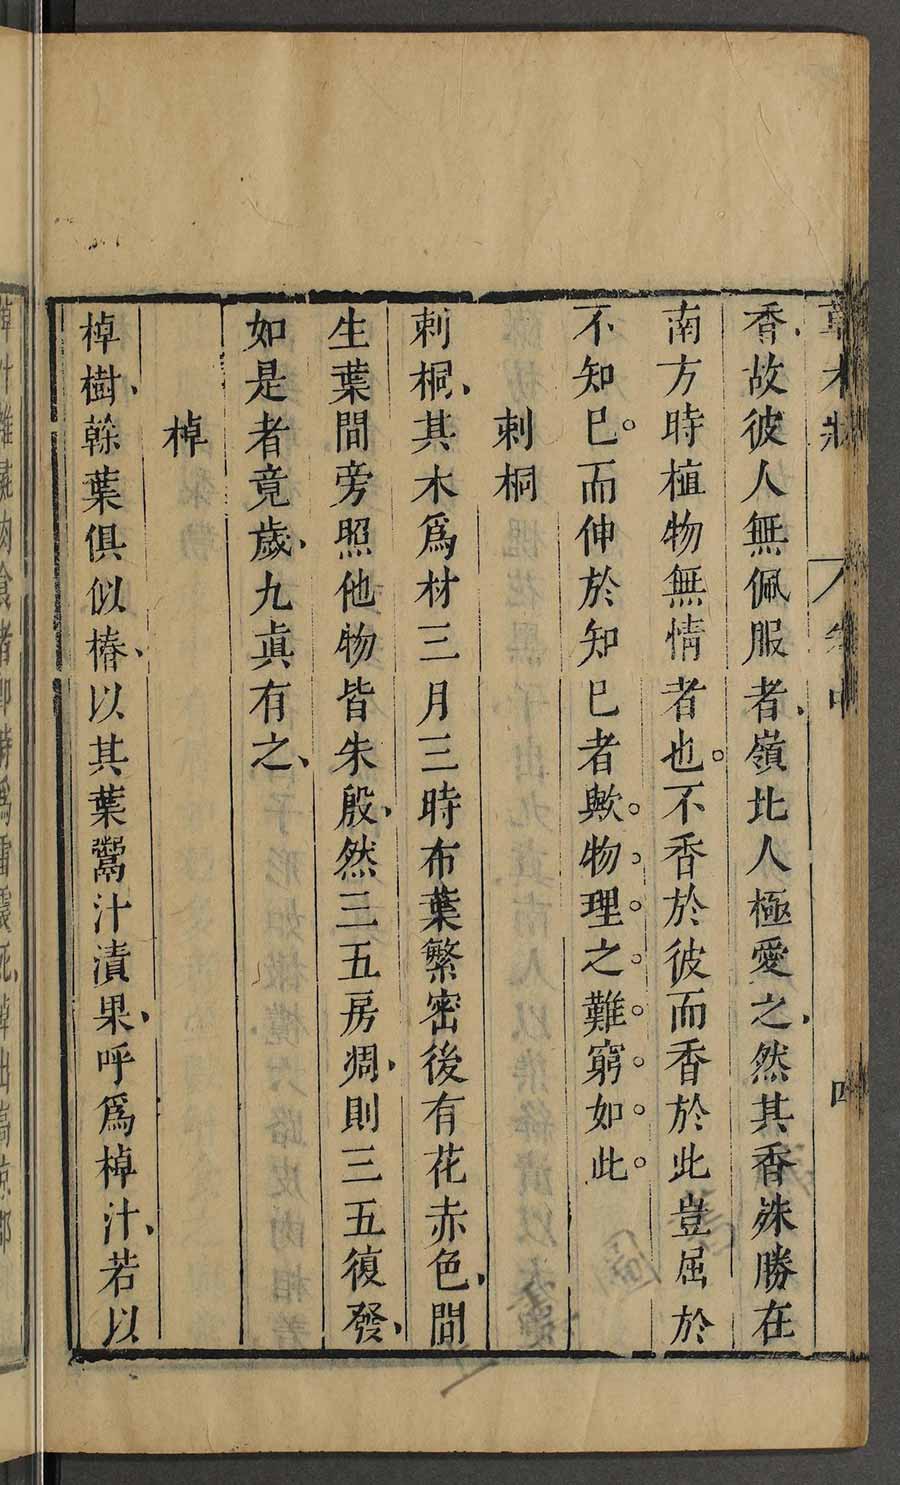 草木狀 卷中 四
香、故彼人無佩服者、嶺北人極愛之、然其香殊勝在
南方時植物無情者也。不香於彼而香於此豈屈於
不知己。而伸於知己者歟。物。理。之。難。窮。如。此。
刺桐
刺桐、其木爲材三月三時布葉繁密後有花赤色、間
生葉間旁照他物皆朱殷、然三五房凋、則三五復發、
如是者竟歲、九眞有之、
棹
棹樹、榦葉俱似椿、以其葉鬻汁漬果、呼爲棹汁、若以